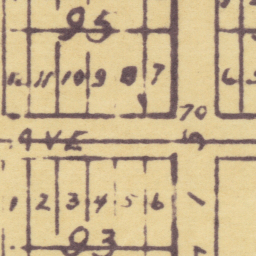 95
11 10 9 8 7
6
70
AVE
1 2 3 4 5 6
93